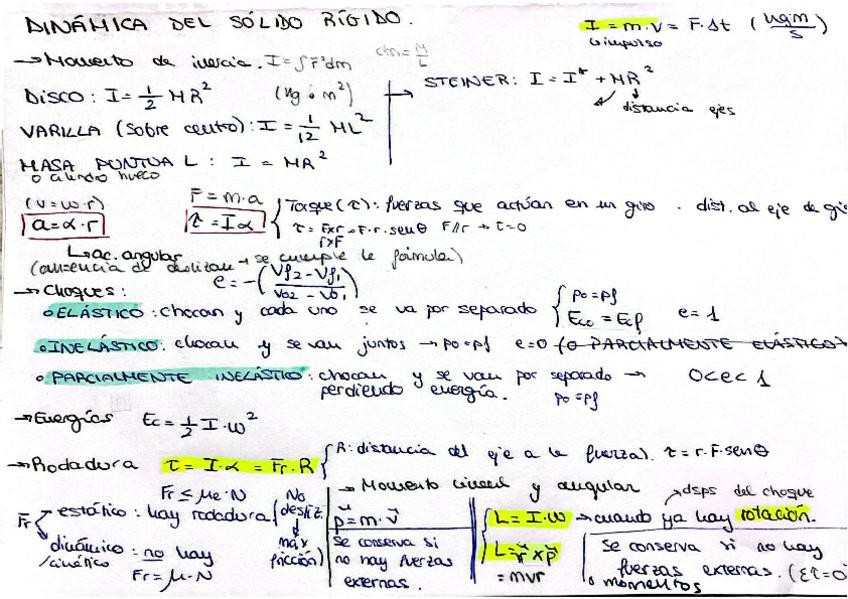 DINÁMICA DEL SÓLIDO RÍGIDO.
I = m.v = F.Δt (kgm/s)
↳impulso
→Momento de inercia. I=∫r²dm dm=M/L
DISCO: I=1/2 MR² (kg ó m²)
STEINER: I = I* + MR²
distancia ejes
VARILLA (sobre centro): I = 1/12 ML²
MASA PUNTUAL: I = MR²
o cilindro hueco
(v=ω.r) F=m.a
a=α.r τ=Iα
Torque(τ): fuerzas que actúan en un giro . dist. al eje de gi
τ = Fxr = F.r.senθ F//r → τ=0
rxF
↳ac. angular
(ausencia de desliza → se cumple la fórmula)
e=-(Vf2-Vf1/Vo2-Vo1)
→Choques:
ELÁSTICO: chocan y cada uno se va por separado po=pf Eco=Ecf e=1
INELÁSTICO: chocan y se van juntos → po=pf e=0 (o PARCIALMENTE ELÁSTICO)
PARCIALMENTE INELÁSTICO: chocan y se van por separado → 0<e<1
perdiendo energía. po=pf
→Energías Ec=1/2 I.ω²
→Rodadura τ = I.α = Fr.R
R: distancia del eje a la fuerza). τ=r.F.senθ
Fr ≤ μe.N
Fr
estático: hay rodadura
No desliz.
máx fricción
dinámico: no hay
/cinético
Fr=μ.N
→ Momento lineal y angular
p=m.v
se conserva si
no hay fuerzas
externas.
→dsps del choque
L=I.ω → cuando ya hay rotación.
L=r x p
=mvr
Se conserva si no hay
fuerzas externas. (Στ=0
o momentos